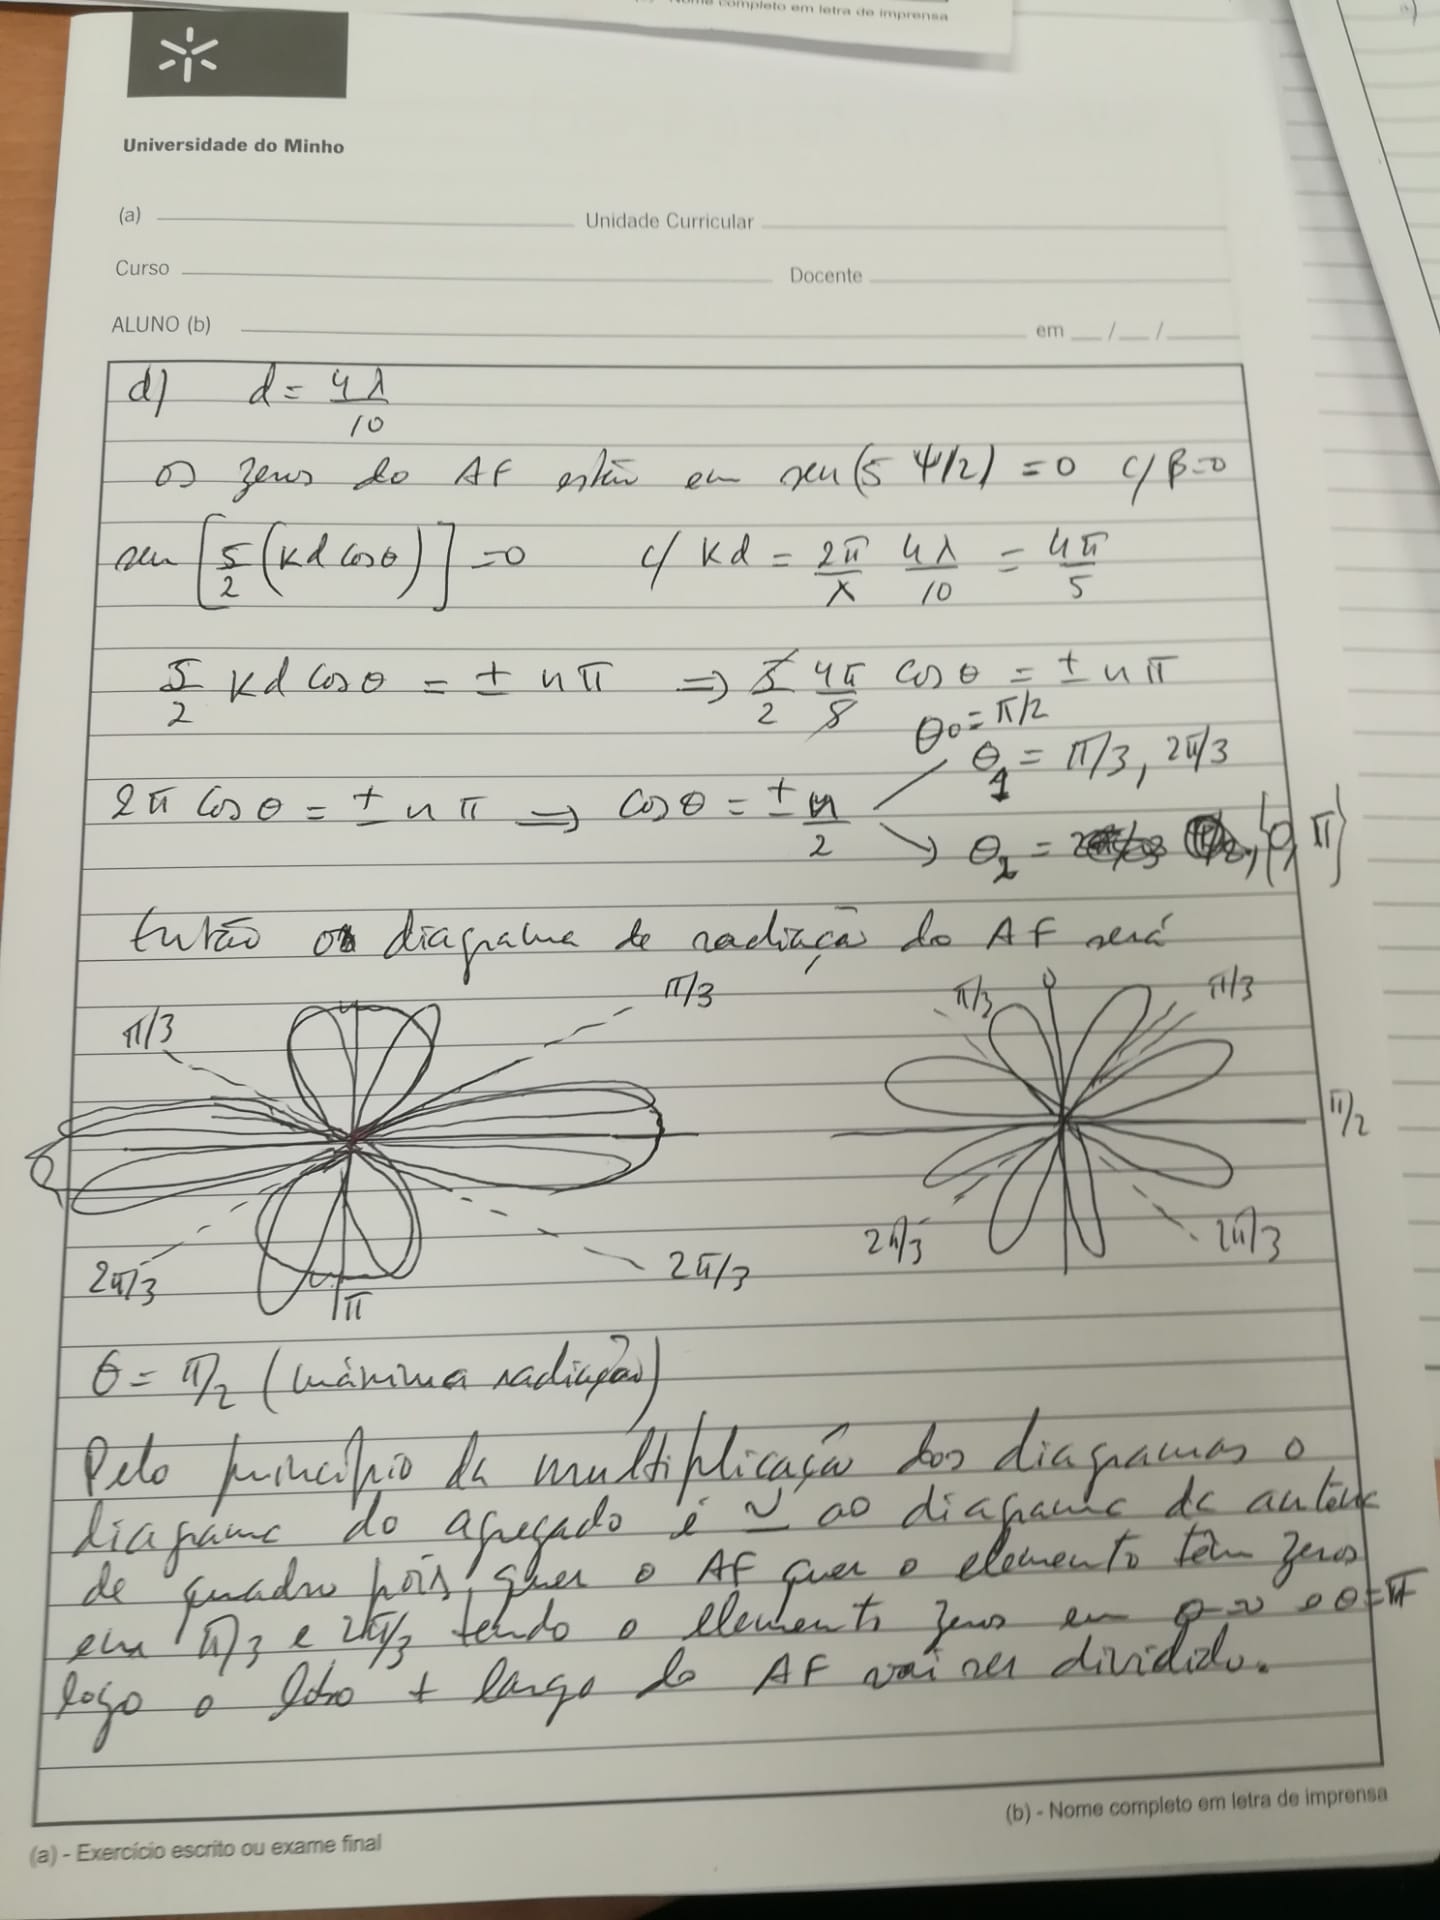 Nome completo em letra de imprensa
Universidade do Minho
(a) Unidade Curricular
Curso Docente
ALUNO (b) em / /
d) d = 4λ/10
os zeros do AF estão em sen(5 Ψ/2) = 0 c/ β=0
sen [5/2 (Kd cosθ)] = 0 c/ Kd = 2π/λ 4λ/10 = 4π/5
5/2 Kd cosθ = ± nπ => 5/2 4π/5 cosθ = ± nπ
θ0 = π/2
θ1 = π/3, 2π/3
2π cosθ = ± nπ => cosθ = ± n/2
θ2 = {0, π}
Então o diagrama de radiação do AF será
π/3 π/3 π/3 0 π/3
π/2
2π/3 π 2π/3 2π/3 2π/3
θ = π/2 (máxima radiação)
Pelo princípio da multiplicação dos diagramas o
diagrama do agregado é ≃ ao diagrama da antena
de quadro pois, quer o AF quer o elemento têm zeros
em π/3 e 2π/3 tendo o elemento zeros em θ=0 e θ=π
logo o lobo + largo do AF vai ser dividido.
(b) - Nome completo em letra de imprensa
(a) - Exercício escrito ou exame final